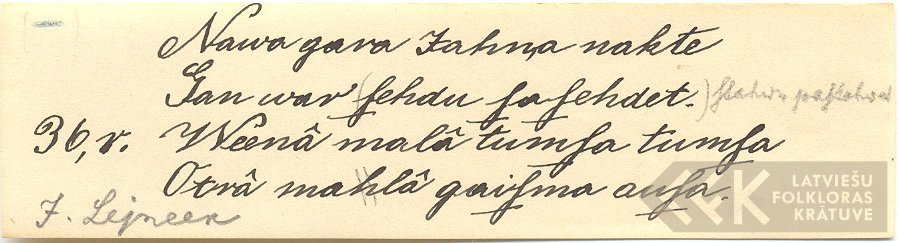 Nawa gara Jahņa nakte
Gan war (ſehdu ſa ſehdet.) ſtahwu
36, v. Weenâ malâ tumſa tumſa
Otrâ mahlâ gaiſma auſa.
J. Lejneek
LATVIEŠU
FOLKLORAS
KRĀTUVE